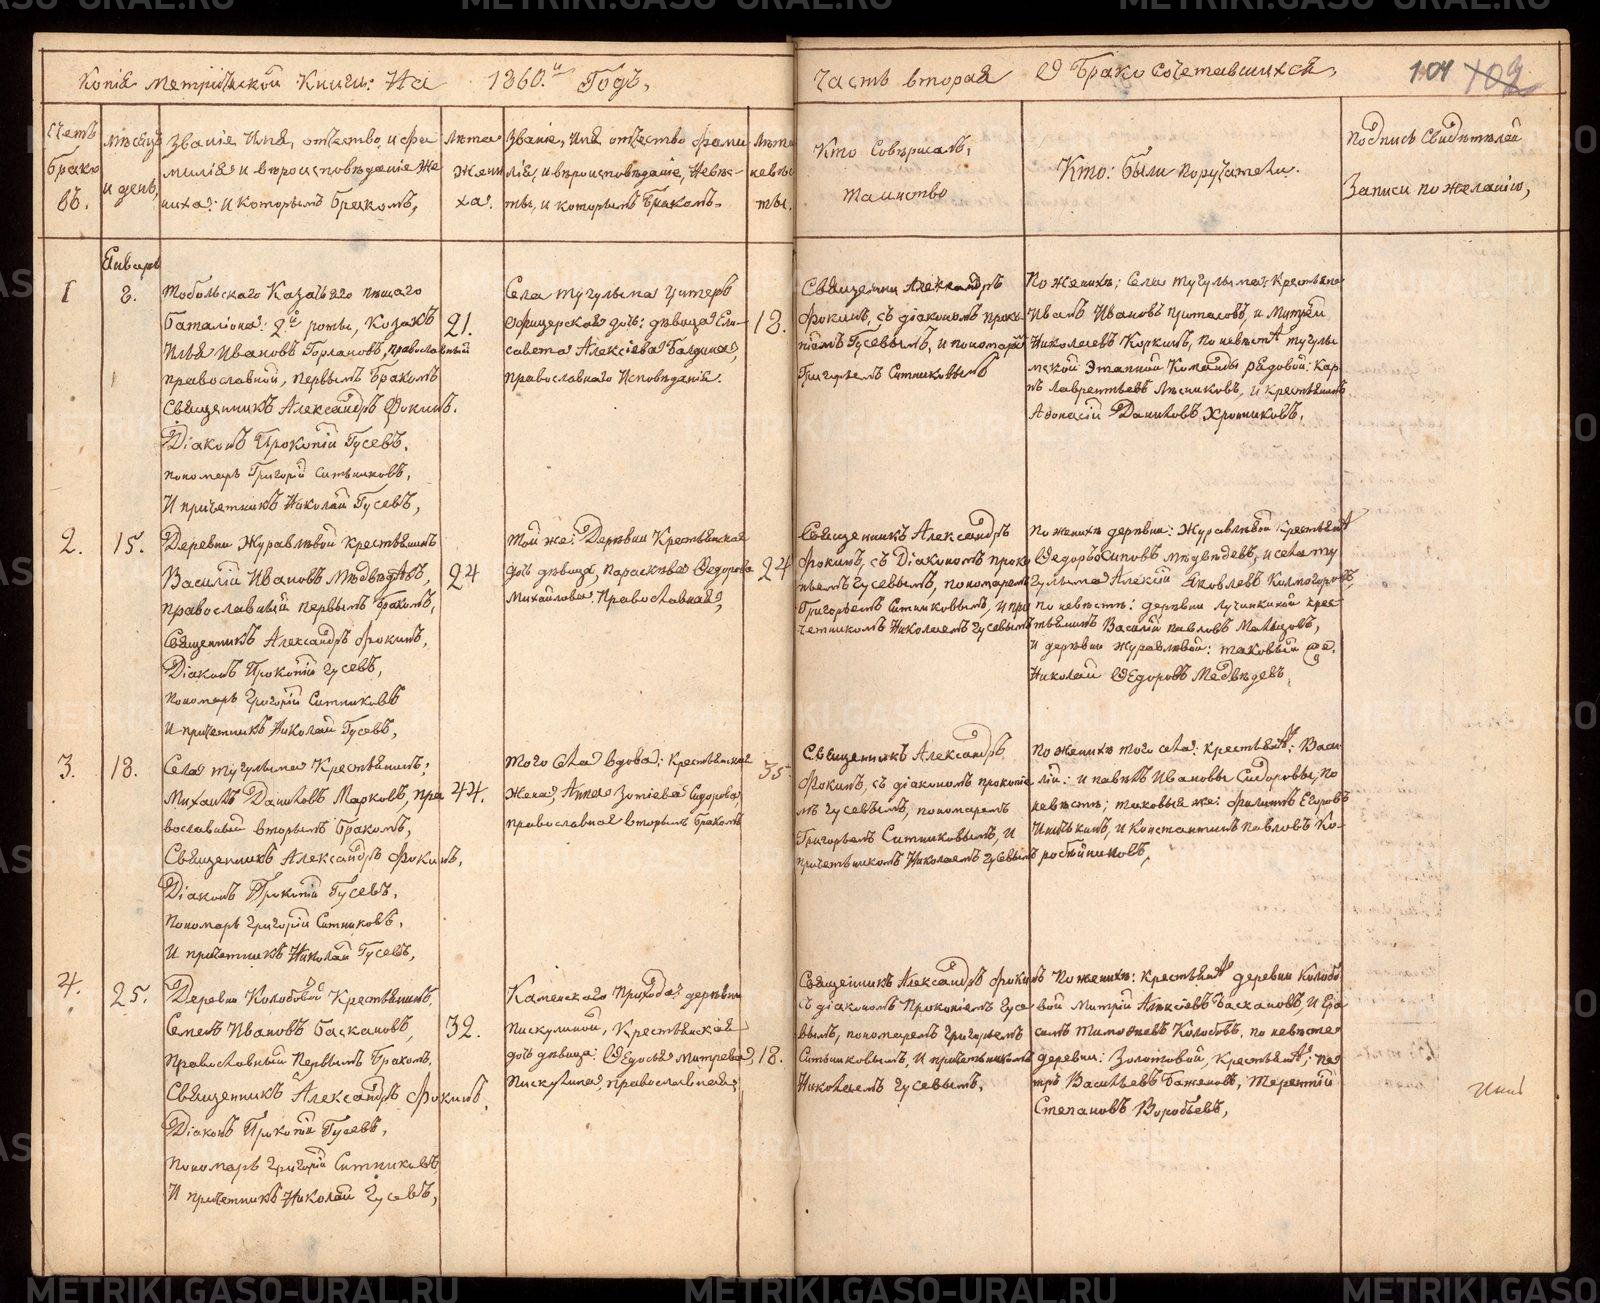 Копія метрической Книги: На 1860.й Годъ,
Часть вторая О Бракосочетавшихся,
101 102
Счетъ
браковъ.
Мѣсяцъ
и день,
Званіе Имя, отчество, и фа
милія и вѣроисповѣданіе Же
ниха: и Которымъ Бракомъ,
Лѣта
Жени
ха.
Званіе, Имя отчество фами
лія, и вѣроисповѣданіе, Невѣс-
ты, и которымъ Бракомъ.
Лѣта
невѣс
ты.
Кто Совершалъ,
Таинство
Кто: были поручатели.
Подпись Свидѣтелей
Записи по желанію,
Генварь
1
8.
Тобольскаго Казачьяго пѣшаго
Баталіона: 2й роты, Козакъ
Илья Ивановъ Горлановъ, православный
православной, первымъ бракомъ
Священникъ Александръ Фокинъ.
Діаконъ Прокопій Гусевъ.
пономарь Григорій Ситниковъ,
И причетникъ Николай Гусевъ,
21.
Села Тугулыма Унтеръ
Офицерская дочь: дѣвица Ели-
савета Алексіева Балдина,
православнаго Исповѣданія.
18.
Священни Александръ
Фокинъ, съ діакономъ Проко
піемъ Гусевымъ, и пономаремъ
Григорьемъ Ситниковымъ
По женихѣ; Села Тугулыма: Крестьяна
Иванъ Ивановъ, и Митрей
Николаевъ Коркинъ, по невѣстѣ тугулы
мской Этапной Команды рядовой: Кар
пъ Лаврентьевъ, и крестьянинъ
Афонасій Даниловъ Хромиковъ.
2.
15.
Деревни Журавлевой крестьянинъ
Василій Ивановъ Медвѣдевъ,
православный первымъ бракомъ,
Священникъ Александръ Фокинъ,
Діаконъ Прокопій Гусевъ,
Пономарь Григорій Ситниковъ
И причетникъ Николай Гусевъ,
24
Той же: Деревни Крестьянская
дочь дѣвица, Параскѣва Федорова
Михайлова Православная,
24
Священникъ Александръ
Фокинъ, съ Діакономъ проко
пьемъ Гусевымъ, пономаремъ
Григорьемъ Ситниковымъ, и при
четникомъ Николаемъ Гусевымъ
По женихѣ деревни: Журавлевой крестьяна
Ѳедоръ Осиповъ Медвѣдевъ, и села ту
гулыма Алексій Яковлевъ Колмогоровъ,
по невѣстѣ: деревни Лучинкиной крес
тьянинъ Василій Павловъ Мальцовъ,
И деревни Журавлевой: таковый же.
Николай Ѳедоровъ Медвѣдевъ,
3.
18.
Села Тугулыма Крестьянинъ,
Михаилъ Даниловъ Марковъ, пра
вославный вторымъ бракомъ,
Священникъ Александръ Фокинъ,
Діаконъ Прокопій Гусевъ,
Пономарь Григорій Ситниковъ,
И причетникъ Николай Гусевъ,
44.
Того Села вдова: крестьянская
Жена, Анна Зотіева Сидорова,
православная вторымъ бракомъ
35.
Священникъ Александръ
Фокинъ, съ діакономъ прокопіе
мъ Гусевымъ, пономаремъ
Григорьемъ Ситниковымъ, И
причетникомъ Николаемъ Гусевымъ
По женихѣ того села: крестьяна: Васи
лій: и павелъ Ивановы Сидоровы, по
невѣстѣ; таковыя же: Филипъ Егоровъ
и Константинъ Павловъ Ко-
робейниковъ,
4.
25.
Деревни Колобовой Крестьянинъ,
Семенъ Ивановъ Баскановъ,
Православный Первымъ Бракомъ,
Священникъ Александръ Фокинъ,
Діаконъ Прокопій Гусевъ,
Пономарь Григорій Ситниковъ
И причетникъ Николай Гусевъ,
32.
Каменскаго Прихода: деревни
Пискулиной, Крестьянская
дочь дѣвица: Ѳедосья Митрева,
Пискулина, православная;
18.
Священникъ Александръ Фокинъ
съ діакономъ Прокопіемъ Гусе
вымъ, пономаремъ Григорьемъ
Ситниковымъ, И причетникомъ
Николаемъ Гусевымъ,
По женихѣ: крестьяна деревни Колобо
вой Митрій Алексіевъ Баскановъ, И Гера
симъ Тимофеевъ Колобовъ, по невѣсте
деревни: Золотовой, крестьяна; Пе
тръ Васильевъ Баженовъ, Терентій
Степановъ Воробьевъ,
METRIKI.GASO-URAL.RU